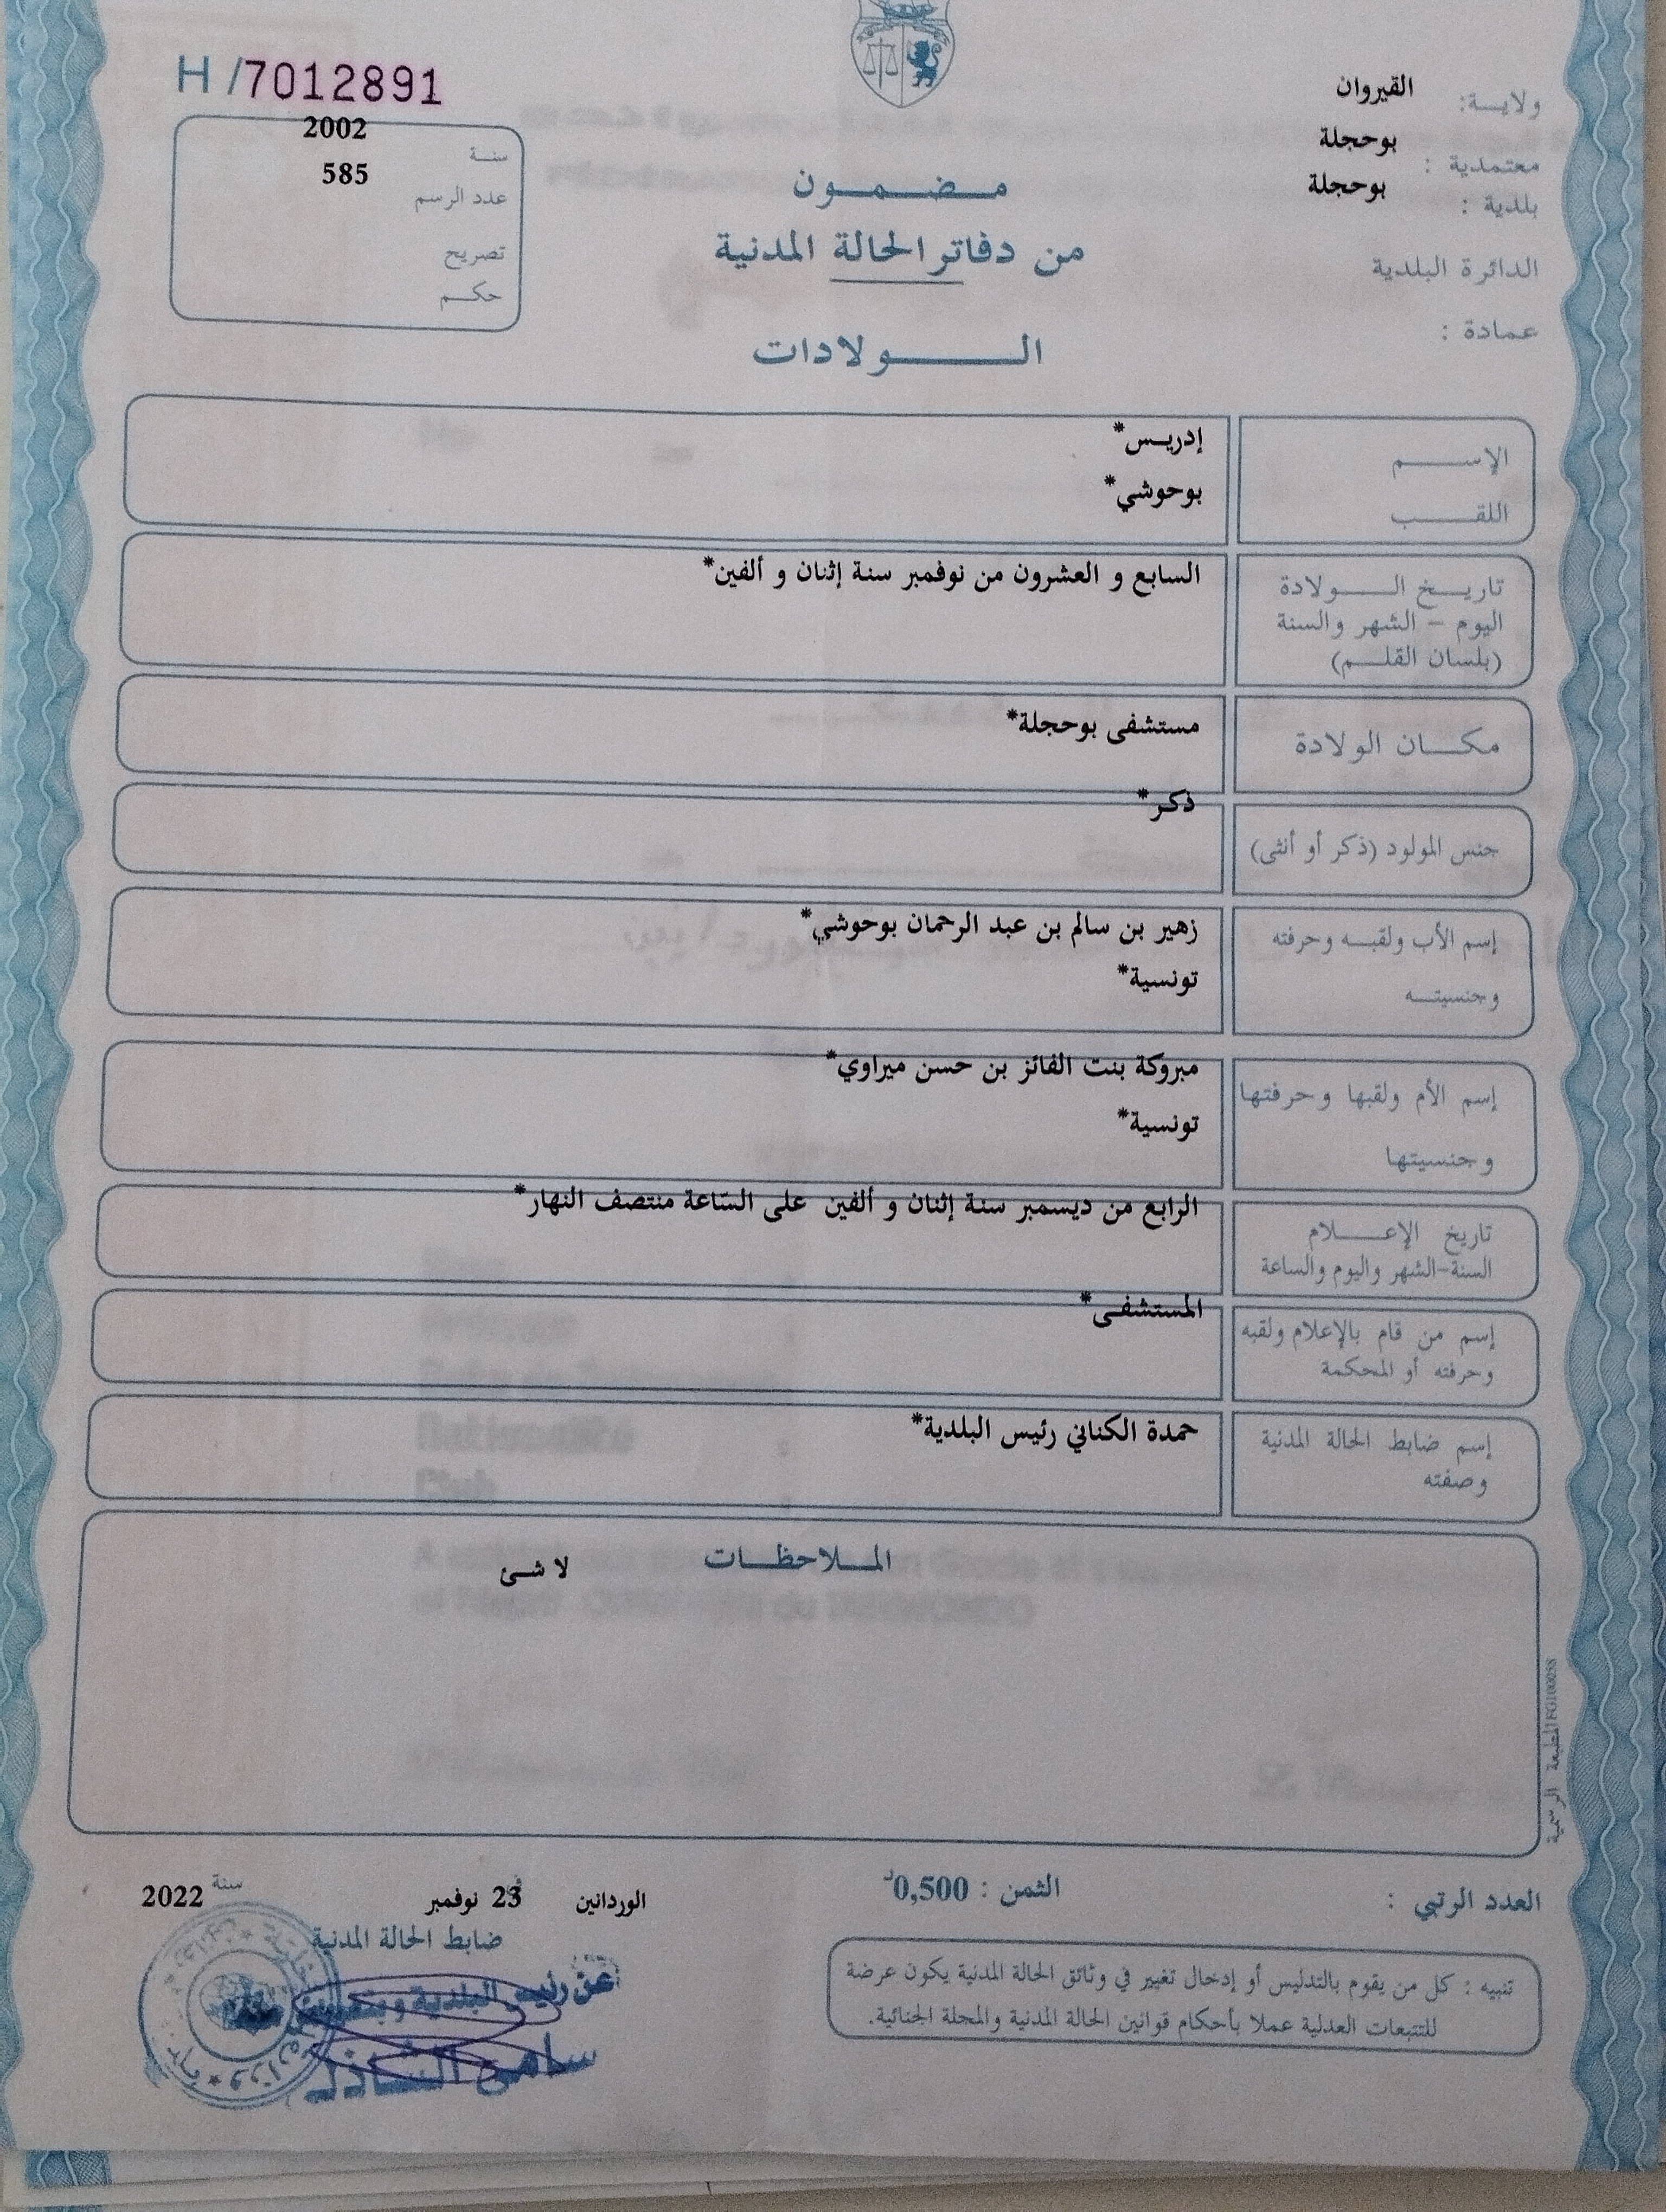 H /7012891
2002
سنة
585
عدد الرسم
تصريح
حكم
القيروان
ولاية:
بوحجلة
معتمدية :
بوحجلة
بلدية :
الدائرة البلدية
عمادة :
مضمون
من دفاتر الحالة المدنية
الولادات
الإسم
إدريس*
اللقب
بوحوشي*
تاريخ الولادة
اليوم – الشهر والسنة
(بلسان القلم)
السابع و العشرون من نوفمبر سنة إثنان و ألفين*
مكان الولادة
مستشفى بوحجلة*
جنس المولود (ذكر أو أنثى)
ذكر*
إسم الأب ولقبه وحرفته
وجنسيته
زهير بن سالم بن عبد الرحمان بوحوشي*
تونسية*
إسم الأم ولقبها وحرفتها
وجنسيتها
مبروكة بنت الفائز بن حسن ميراوي*
تونسية*
تاريخ الإعلام
السنة-الشهر واليوم والساعة
الرابع من ديسمبر سنة إثنان و ألفين على السّاعة منتصف النهار*
إسم من قام بالإعلام ولقبه
وحرفته أو المحكمة
المستشفى*
إسم ضابط الحالة المدنية
وصفته
حمدة الكناني رئيس البلدية*
الملاحظات
لا شئ
المطبعة الرسمية
العدد الرتبي :
الثمن : 0,500د
الوردانين في 23 نوفمبر سنة 2022
ضابط الحالة المدنية
عن رئيس البلدية و
سامي الشاذلي
تنبيه : كل من يقوم بالتدليس أو إدخال تغيير في وثائق الحالة المدنية يكون عرضة
للتتبعات العدلية عملا بأحكام قوانين الحالة المدنية والمجلة الجنائية.